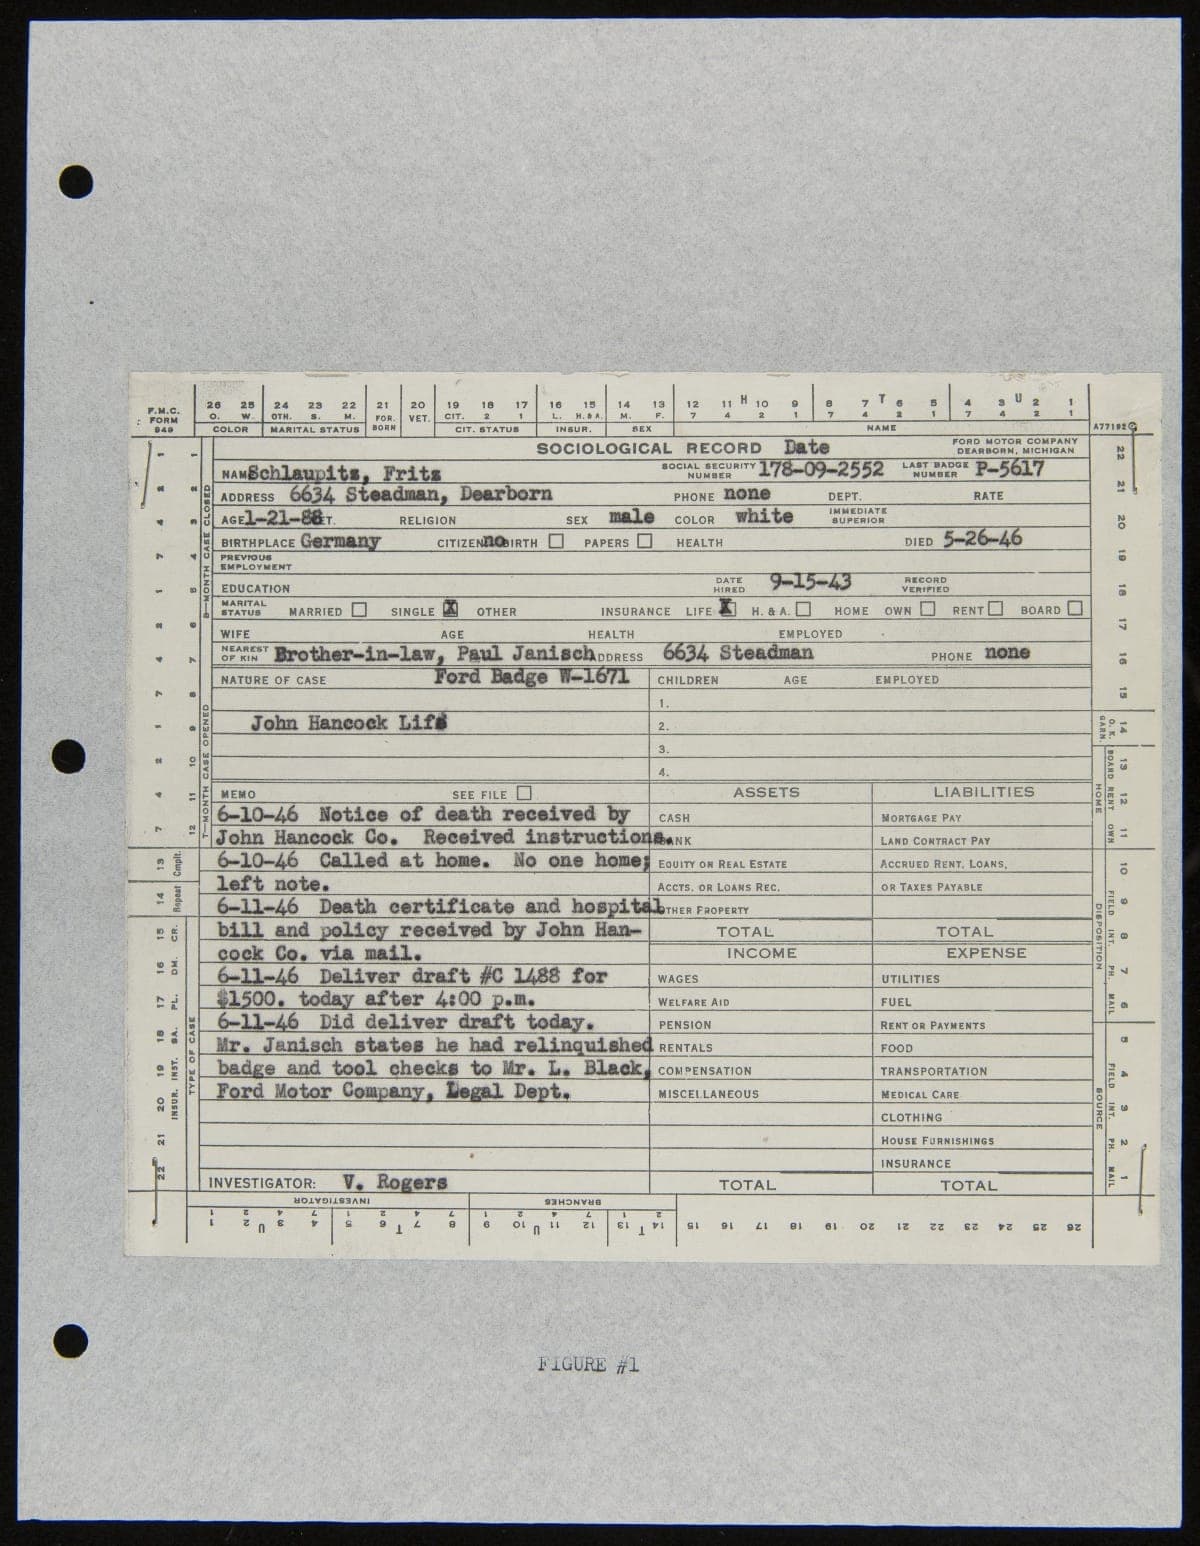 F.M.C. FORM 949
26 25 24 23 22 21 20 19 18 17 16 15 14 13 12 11 H 10 9 8 7 T 6 5 4 3 U 2 1
O. W. OTH. S. M. FOR. BORN VET. CIT. 2 1 L. H.&A. M. F. 7 4 2 1 7 4 2 1 7 4 2 1
COLOR MARITAL STATUS CIT. STATUS INSUR. SEX NAME A77192
SOCIOLOGICAL RECORD Date FORD MOTOR COMPANY DEARBORN, MICHIGAN
NAM Schlaupitz, Fritz SOCIAL SECURITY NUMBER 178-09-2552 LAST BADGE NUMBER P-5617
ADDRESS 6634 Steadman, Dearborn PHONE none DEPT. RATE
AGE 1-21-88 T. RELIGION SEX male COLOR white IMMEDIATE SUPERIOR
BIRTHPLACE Germany CITIZEN no BIRTH PAPERS HEALTH DIED 5-26-46
PREVIOUS EMPLOYMENT
EDUCATION DATE HIRED 9-15-43 RECORD VERIFIED
MARITAL STATUS MARRIED SINGLE X OTHER INSURANCE LIFE X H. & A. HOME OWN RENT BOARD
WIFE AGE HEALTH EMPLOYED
NEAREST OF KIN Brother-in-law, Paul Janisch DDRESS 6634 Steadman PHONE none
NATURE OF CASE Ford Badge W-1671 CHILDREN AGE EMPLOYED
1.
John Hancock Life 2.
3.
4.
MEMO SEE FILE ASSETS LIABILITIES
6-10-46 Notice of death received by CASH MORTGAGE PAY
John Hancock Co. Received instructions. ANK LAND CONTRACT PAY
6-10-46 Called at home. No one home; EQUITY ON REAL ESTATE ACCRUED RENT, LOANS,
left note. ACCTS. OR LOANS REC. OR TAXES PAYABLE
6-11-46 Death certificate and hospital OTHER PROPERTY
bill and policy received by John Han- TOTAL TOTAL
cock Co. via mail. INCOME EXPENSE
6-11-46 Deliver draft #C 1488 for WAGES UTILITIES
$1500. today after 4:00 p.m. WELFARE AID FUEL
6-11-46 Did deliver draft today. PENSION RENT OR PAYMENTS
Mr. Janisch states he had relinquished RENTALS FOOD
badge and tool checks to Mr. L. Black, COMPENSATION TRANSPORTATION
Ford Motor Company, Legal Dept. MISCELLANEOUS MEDICAL CARE
CLOTHING
HOUSE FURNISHINGS
INSURANCE
INVESTIGATOR: V. Rogers TOTAL TOTAL
INVESTIGATOR BRANCHES
1 2 4 7 1 2 4 7 1 2 4 7 1 2
1 2 U 3 4 5 6 T 7 8 9 10 U 11 12 13 T 14 15 16 17 18 19 20 21 22 23 24 25 26
1 2 4 7 1 2 4 7 1 2 4 7
13 Cmplt.
14 Repeat
15 16 17 18 19 20 21 22
CR. DM. PL. SA. INST. INSUR.
TYPE OF CASE
1 2 3 4 5 6 7 8 9 10 11 12
8—MONTH CASE CLOSED
7—MONTH CASE OPENED
22 21 20 19 18 17 16 15 14 13 12 11 10 9 8 7 6 5 4 3 2 1
O.K. GARN.
BOARD RENT OWN
HOME
FIELD INT. PH. MAIL
DISPOSITION
FIELD INT. PH. MAIL
SOURCE
FIGURE #1